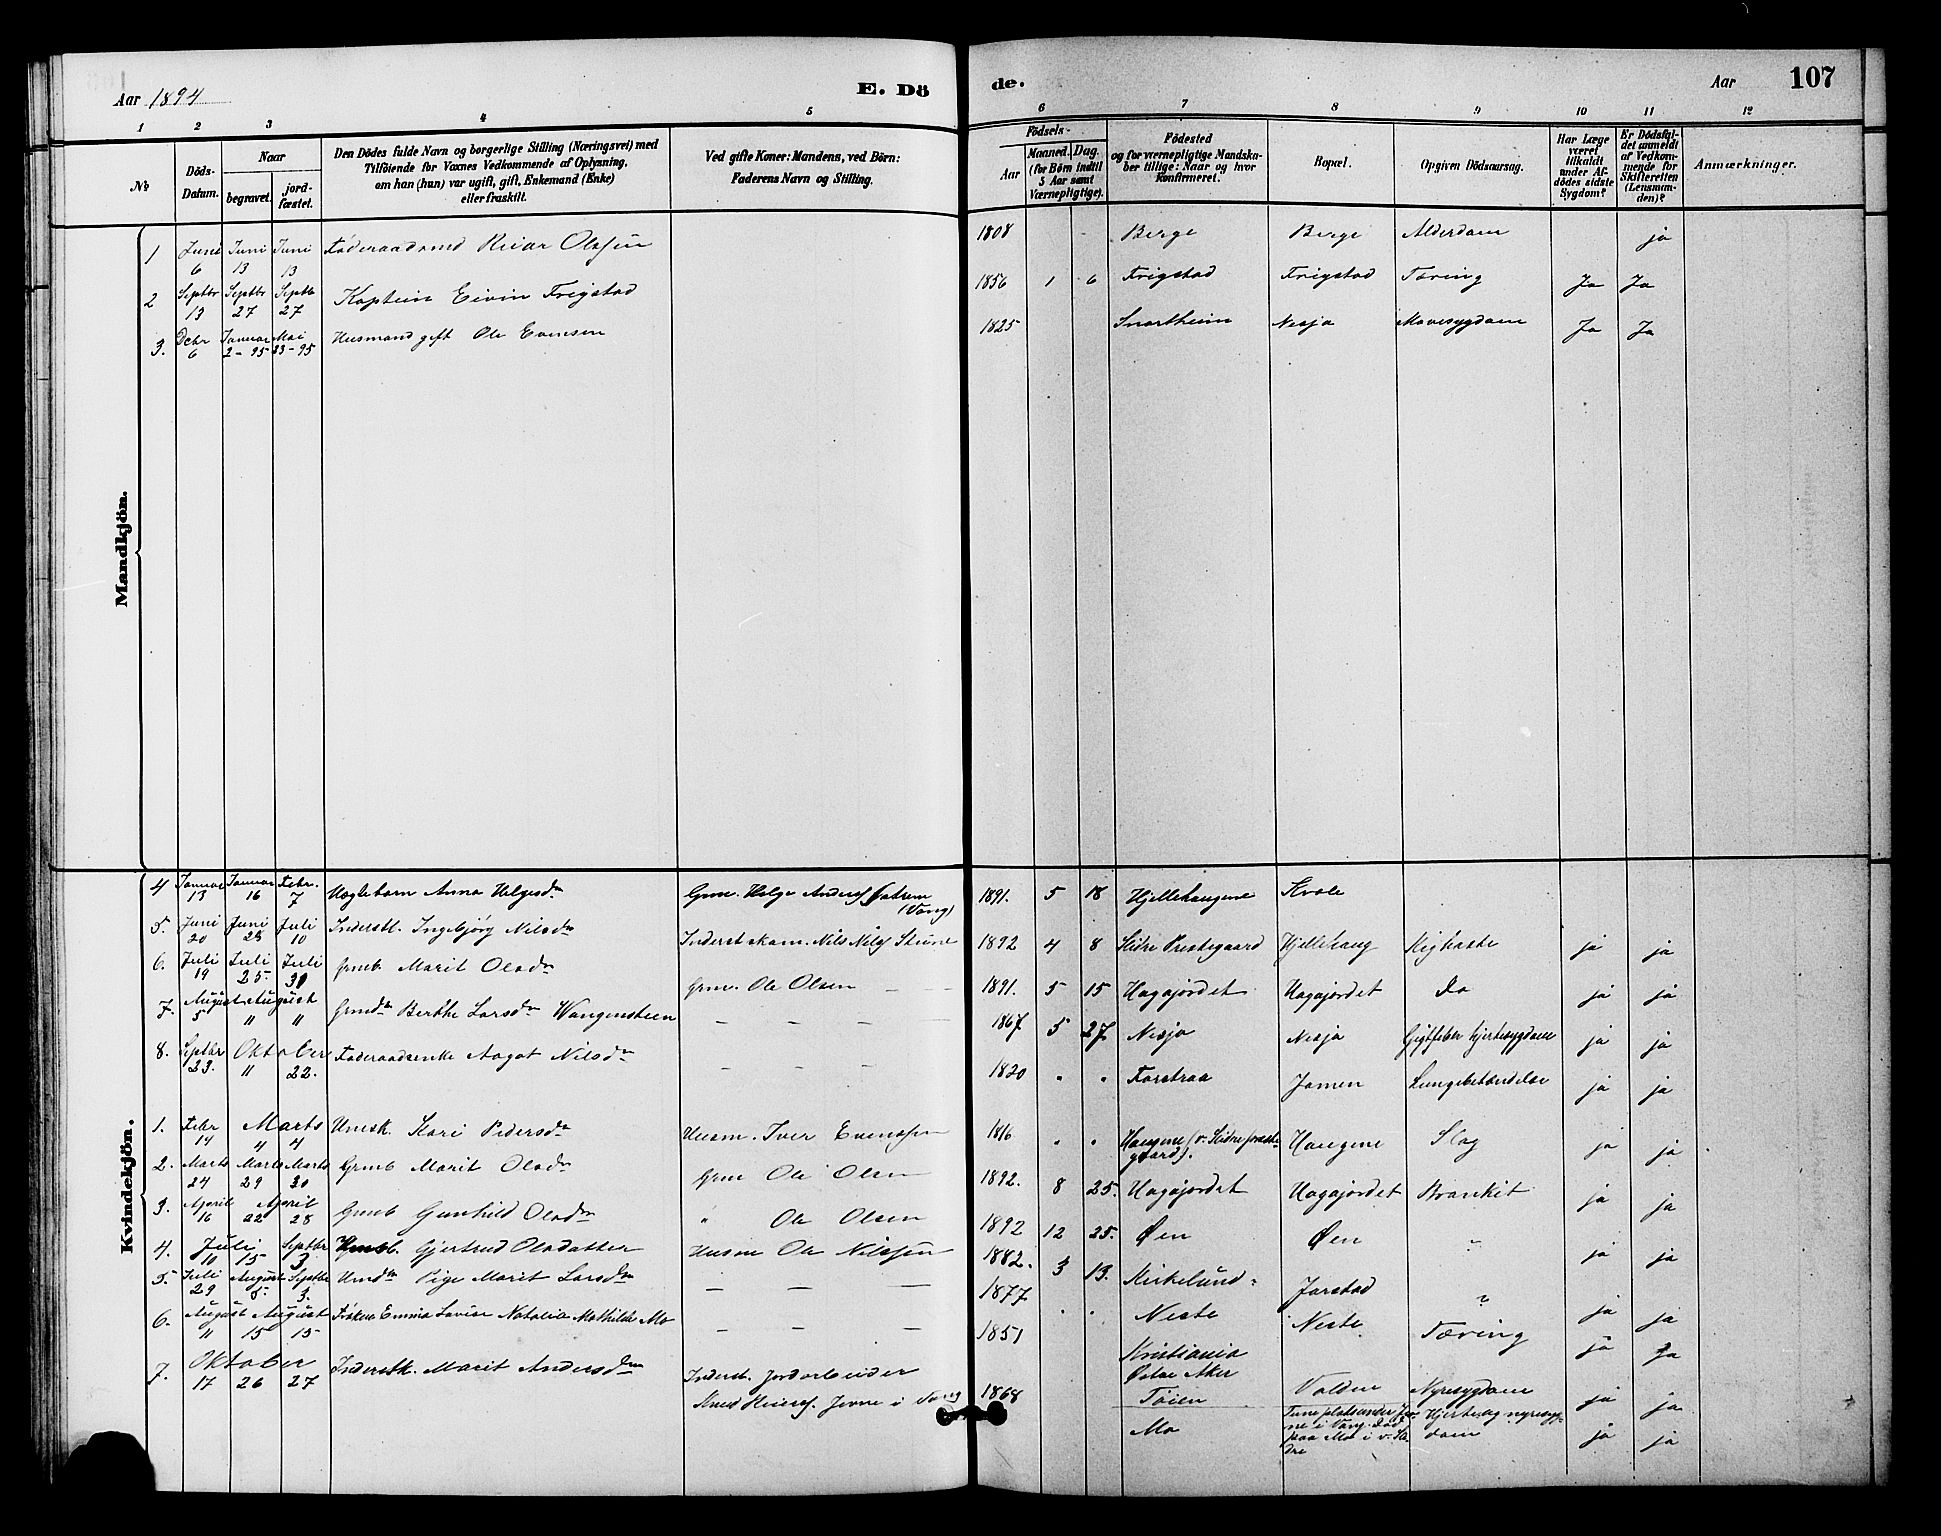 Aar 1894
E. Dö
de.
Aar
107
1 2 3 4 5 6 7 8 9 10 11 12
No
Döds-
Datum.
Naar
begravet.
jord-
fæstet.
Den Dödes fulde Navn og borgerlige Stilling (Næringsvei) med
Tilföiende for Voxnes Vedkommende af Oplysning,
om han (hun) var ugift, gift, Enkemand (Enke)
eller fraskilt.
Ved gifte Koner: Mandens, ved Börn:
Faderens Navn og Stilling.
Födsels-
Aar
Maaned. Dag.
(for Börn indtil
5 Aar samt
Værnepligtige).
Födested
og for værnepligtige Mandska-
ber tillige: Naar og hvor
Konfirmeret.
Bopæl.
Opgiven Dödsaarsag.
Har Læge
været
tilkaldt
under Af-
dödes sidste
Sygdom?
Er Dödsfal-
det anmeldt
af Vedkom-
mende for
Skifteretten
(Lensman-
den)?
Anmærkninger.
Mandkjön.
1 Juni 6 Juni 13 Juni 13 Föderaadsmd Reiar Olssen 1808 Berge Berge Alderdom ja
2 Septbr 13 Septbr 27 Septb 27 Kaptein Eivin Frigstad 1856 1 6 Frigstad Frigstad Tæring Ja Ja
3. Debr 6 Januar 2-95 Mai 23-95 Husmand gift Ole Evensen 1825 Snortheim Nesja Mavesygdom Ja Ja
4 Januar 13 Januar 16 Febr. 7 Uægtebarn Anna Helgesdr Grm. Helge Anders (Vang) 1891. 5 18 Hjellehaugene Kvale
5. Juni 20 Juni 28 Juli 10 Inderstb. Ingebjörg Nilsdr Inderst skom. Nils Nils 1892 4 8 Slidre Prestegaard Hjellehaug Kighoste ja ja
6. Juli 19 Juli 25 Juli 30 Grmb. Marit Olsdr Grm. Ole Olsen 1891. 5 15 Hagajordet Hagajordet Do ja ja
7. August 5 August 11 11 Grmdr Berthe Larsdr Wangensteen 1867 5 27 Nesja Nesja Gigtfeber Hjertesygdom ja ja
8. Septbr 23. Oktober 11 22. Föderaadsenke Aagot Nilsdr 1820 " " Forstraa Jomen Lungebetændelse ja ja
Kvindekjön.
1. Febr 14 Marts 4 4 Hmsk. Kari Pedersdr Husm. Iver Evenssen 1816 " " Haugene (v. Slidre præste-
gaard). Haugene Slag ja ja
2. Marts 24 Marts 29 Marts 30 Grmb Marit Olsdr Grm Ole Olsen 1892. 8 25. Hagajordet Hagajordet Bronkit ja ja
3. April 16 April 22 28 Grmb Gunhild Olsdr " Ole Olsen 1892 12 25. Øen Øen " ja ja
4. Juli 10 15 Septbr 3 Hmb. Gjertrud Olsdatter Husm Ole Nilssen 1882. 3 13. Kirkelund Jarstad ? ja ja
5. Juli 29 August 5. Septbr 3. Hmdr Pige Marit Larsdr 1877 Neste Neste Tæring ja Ja
6. August 11 August 15 15 Fröken Emma Lovise Natalia Mathilde Mo 1851 Kristiania
Østre Aker
Töien Volden Nyresygdom ja ja
7. Oktober 17 26 27 Inderstk. Marit Andersdtr Inderst. Jordarbeider
Knud Reiers. Jevne i Vang 1868 Mo Tune plads under Jev-
ne i Vang. Död
paa Mo i v. Sli-
dre Hjerte og nyresyg-
dom ja ja